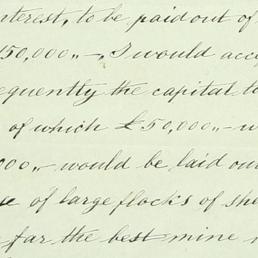 nterest, to be paid out of
50,000,,-, I would acc
equently the capital to
of which £50,000,,- w
000,,- would be laid out
e of large flocks of she
far the best mine